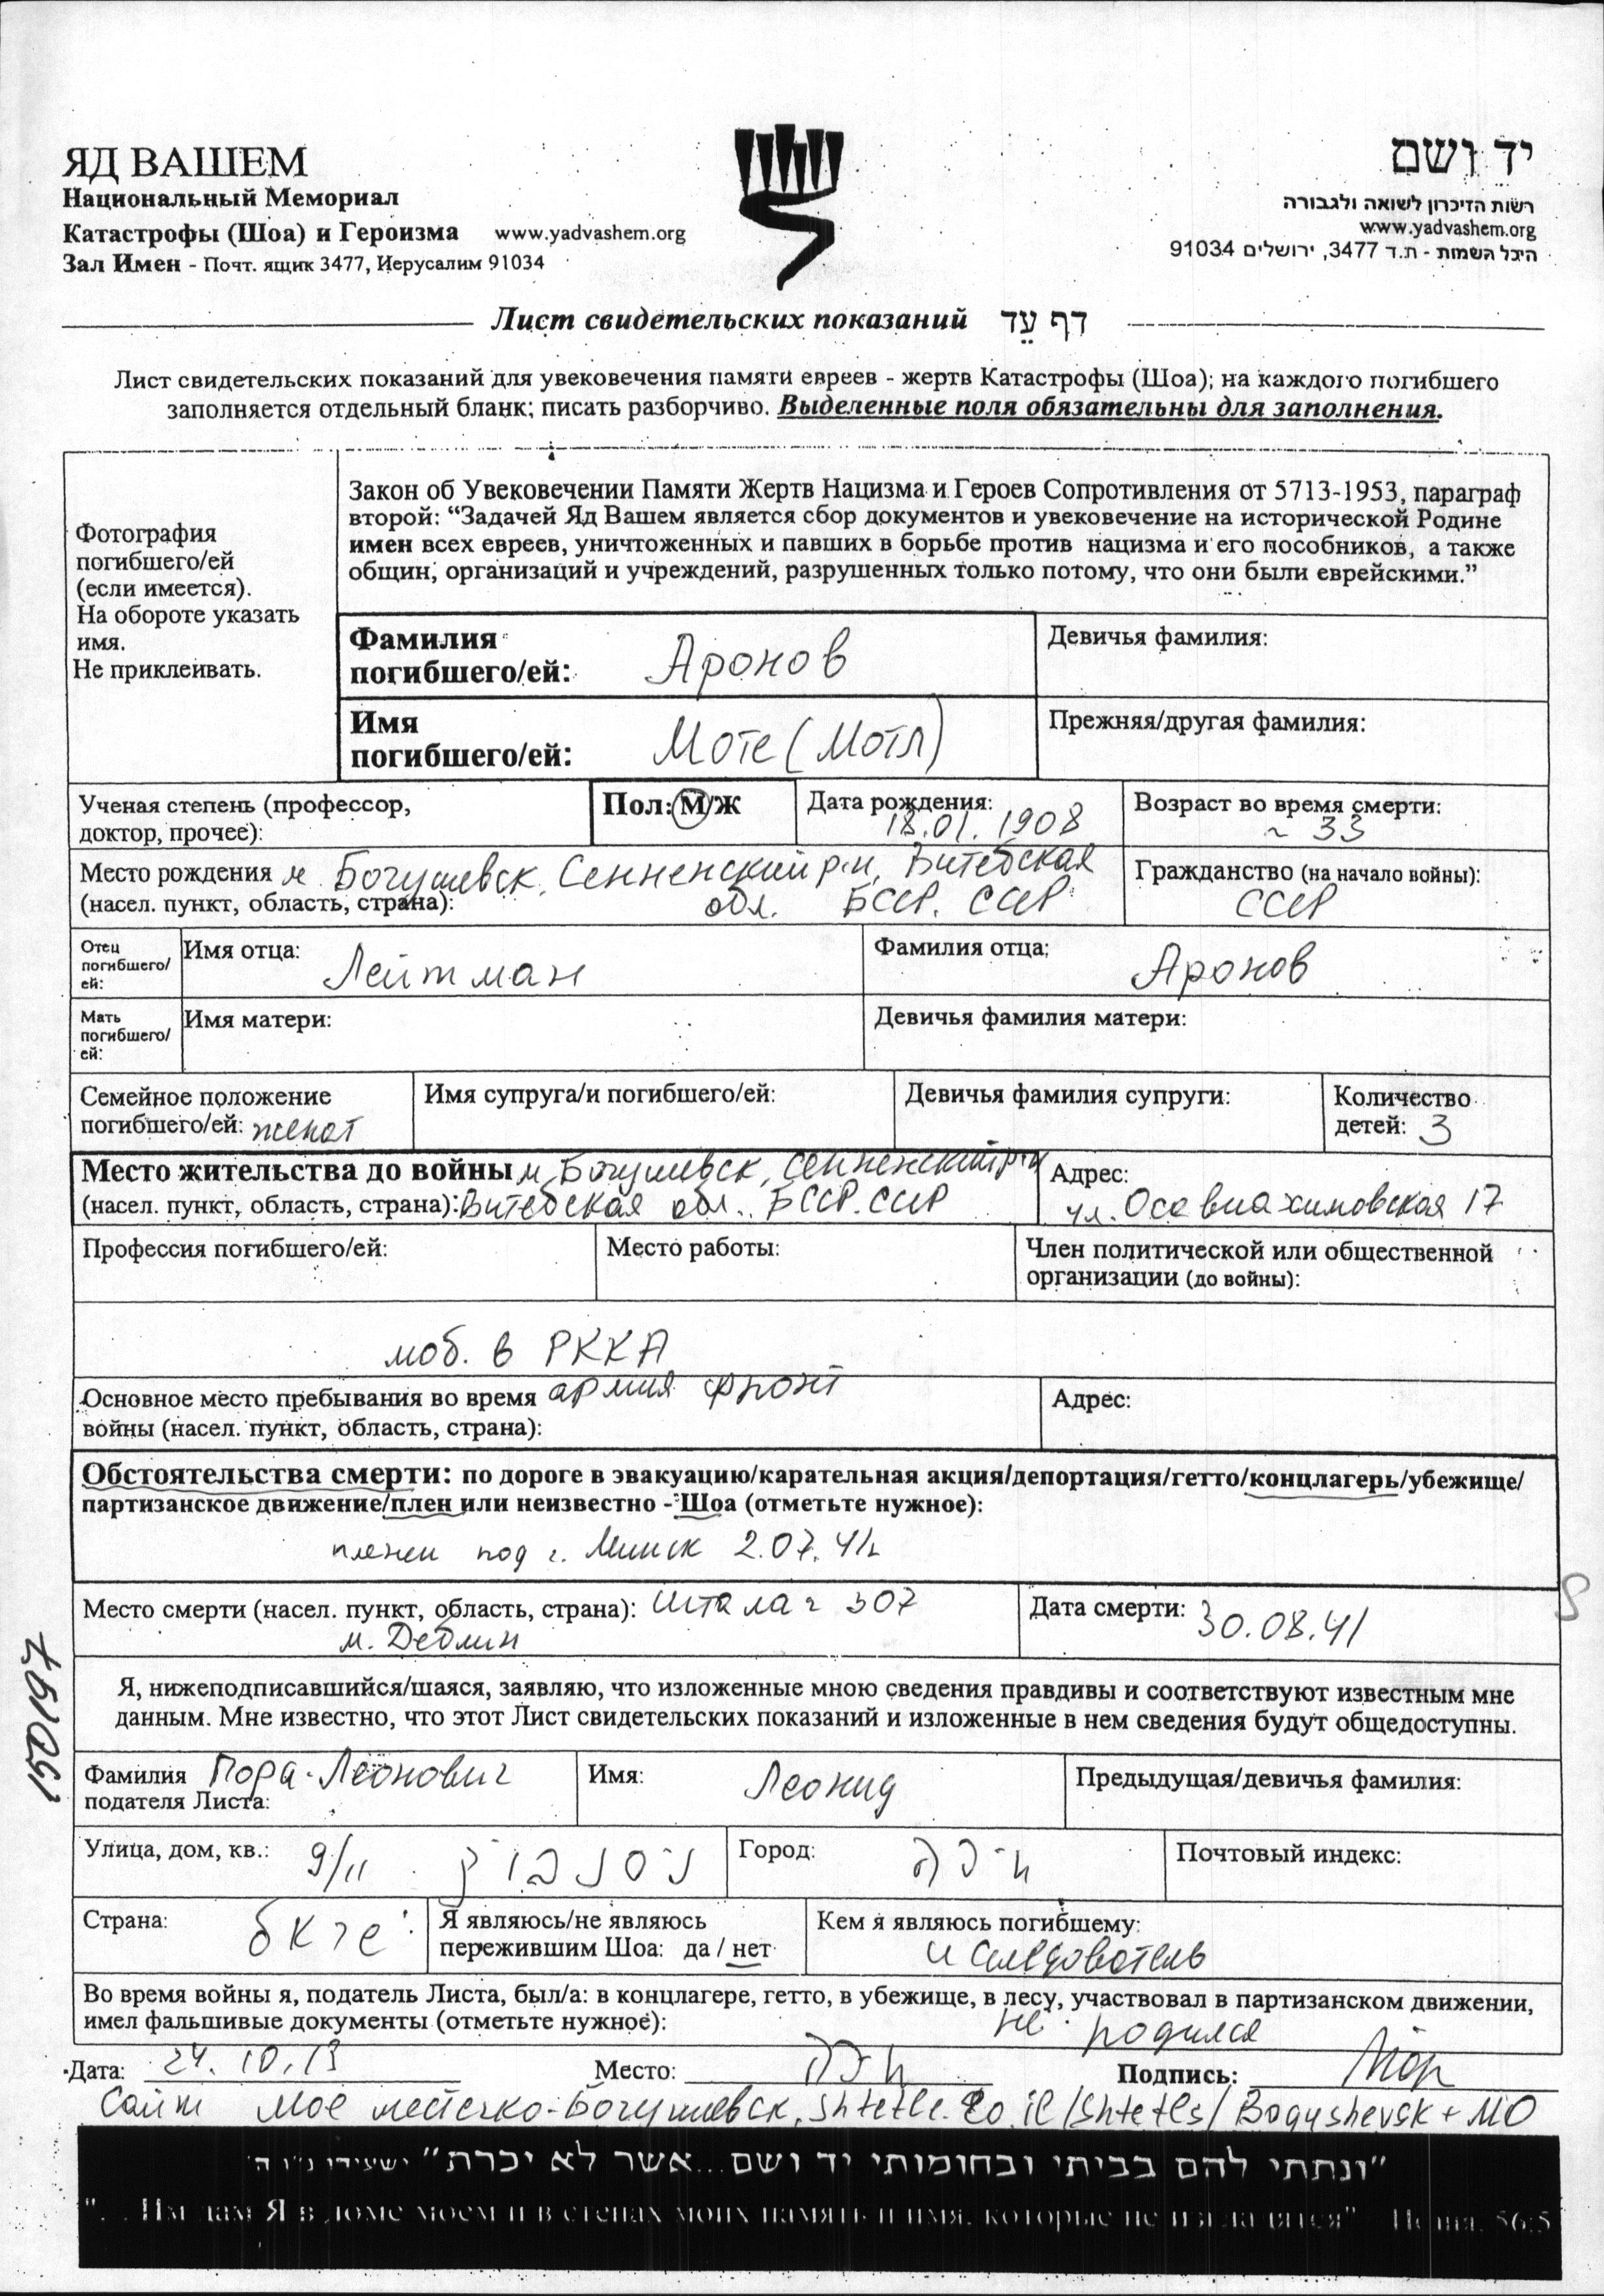 ЯД ВАШЕМ
Национальный Мемориал
Катастрофы (Шоа) и Героизма www.yadvashem.org
Зал Имен - Почт. ящик 3477, Иерусалим 91034
יד ושם
רשות הזיכרון לשואה ולגבורה
www.yadvashem.org
היכל השמות - ת.ד 3477, ירושלים 91034
Лист свидетельских показаний דף עֵד
Лист свидетельских показаний для увековечения памяти евреев - жертв Катастрофы (Шоа); на каждого погибшего
заполняется отдельный бланк; писать разборчиво. Выделенные поля обязательны для заполнения.
Фотография
погибшего/ей
(если имеется).
На обороте указать
имя.
Не приклеивать.
Закон об Увековечении Памяти Жертв Нацизма и Героев Сопротивления от 5713-1953, параграф
второй: “Задачей Яд Вашем является сбор документов и увековечение на исторической Родине
имен всех евреев, уничтоженных и павших в борьбе против нацизма и его пособников, а также
общин, организаций и учреждений, разрушенных только потому, что они были еврейскими.”
Фамилия
погибшего/ей: Аронов
Девичья фамилия:
Имя
погибшего/ей: Моте (Мотл)
Прежняя/другая фамилия:
Ученая степень (профессор,
доктор, прочее):
Пол: М/Ж
Дата рождения:
18.01.1908
Возраст во время смерти:
~ 33
Место рождения м. Богушевск, Сенненский р-н, Витебская
(насел. пункт, область, страна): обл. БССР. СССР
Гражданство (на начало войны):
СССР
Отец
погибшего/
ей:
Имя отца: Лейтман
Фамилия отца: Аронов
Мать
погибшего/
ей:
Имя матери:
Девичья фамилия матери:
Семейное положение
погибшего/ей: женат
Имя супруга/и погибшего/ей:
Девичья фамилия супруги:
Количество
детей: 3
Место жительства до войны м. Богушевск, Сенненский р-н
(насел. пункт, область, страна): Витебская обл. БССР. СССР
Адрес:
ул. Осавиахимовская 17
Профессия погибшего/ей:
Место работы:
Член политической или общественной
организации (до войны):
моб. в РККА
Основное место пребывания во время армия фронт
войны (насел. пункт, область, страна):
Адрес:
Обстоятельства смерти: по дороге в эвакуацию/карательная акция/депортация/гетто/концлагерь/убежище/
партизанское движение/плен или неизвестно - Шоа (отметьте нужное):
пленен под г. Минск 2.07.41г
Место смерти (насел. пункт, область, страна): Шталаг 307
м. Деблин
Дата смерти: 30.08.41
Я, нижеподписавшийся/шаяся, заявляю, что изложенные мною сведения правдивы и соответствуют известным мне
данным. Мне известно, что этот Лист свидетельских показаний и изложенные в нем сведения будут общедоступны.
Фамилия Пора-Леонович
подателя Листа:
Имя: Леонид
Предыдущая/девичья фамилия:
Улица, дом, кв.: 9/11
Город: חיפה
Почтовый индекс:
Страна:
Я являюсь/не являюсь
пережившим Шоа: да / нет
Кем я являюсь погибшему:
исследователь
Во время войны я, податель Листа, был/а: в концлагере, гетто, в убежище, в лесу, участвовал в партизанском движении,
имел фальшивые документы (отметьте нужное): не родился
Дата: 24.10.13 Место: חיפה Подпись:
Сайт Мое местечко-Богушевск, shtetle.co.il/Shtetls/Bogushevsk + МО
"ונתתי להם בביתי ובחומותי יד ושם...אשר לא יכרת" ישעיהו נ"ו ה'
"...Им дам Я в доме моем и в стенах моих память и имя, которые не изгладятся" Исаия, 56:5
150197